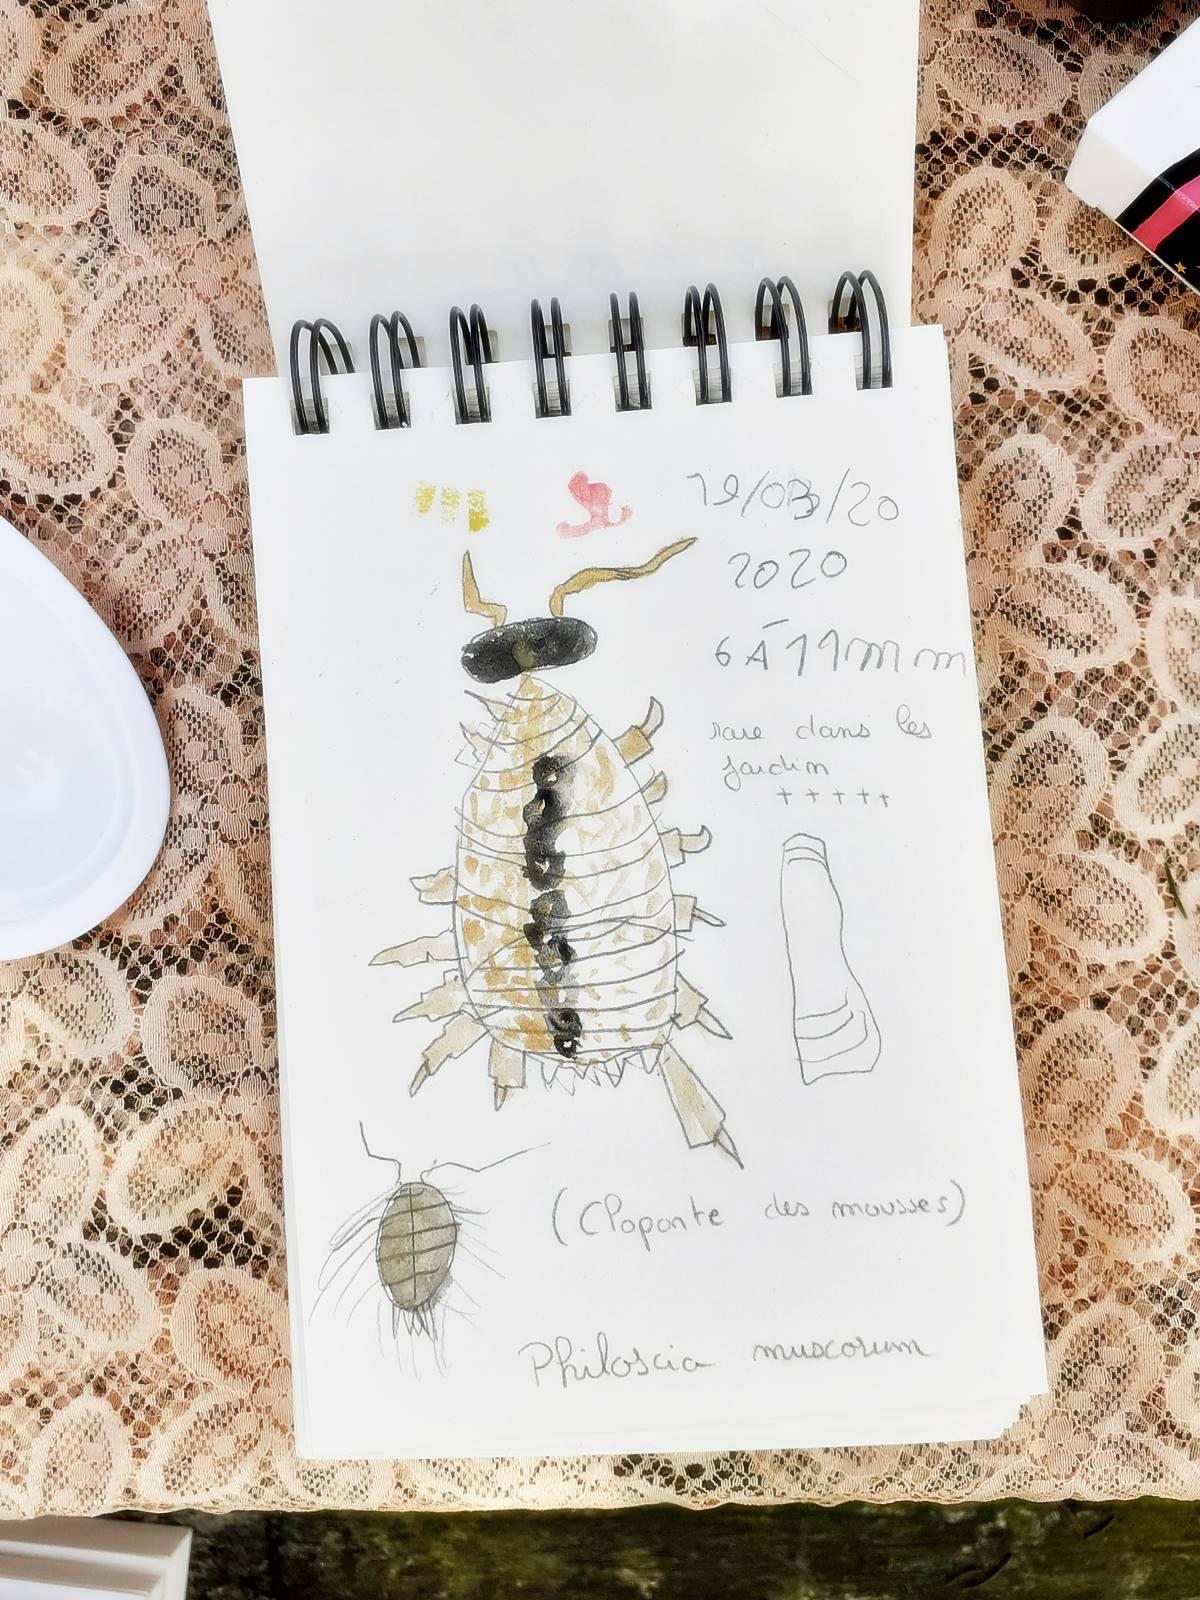 19/03/20
2020
6 À 11 mm
rare dans les
jardin
+++++
(Cloporte des mousses)
Philoscia muscorum